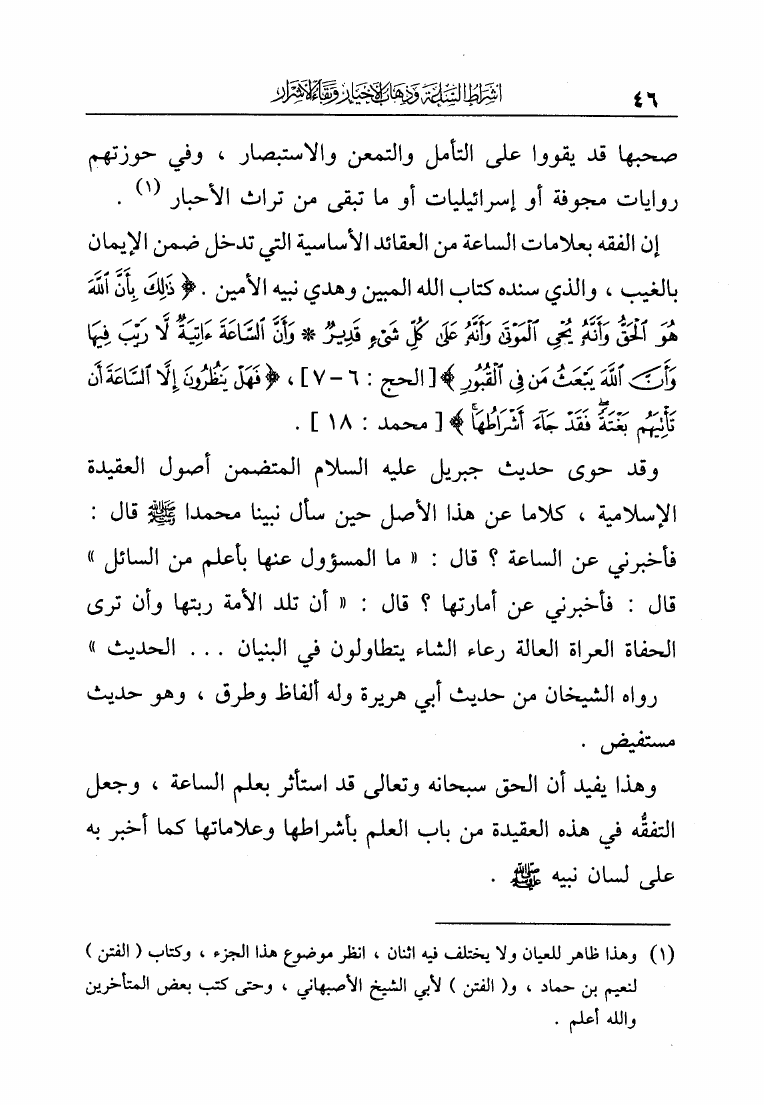 ٤٦
اشراط الساعة وذهاب الأخيار وبقاء الأشرار
صحبها قد يقووا على التأمل والتمعن والاستبصار ، وفي حوزتهم
روايات مجوفة أو إسرائيليات أو ما تبقى من تراث الأحبار (١) .
إن الفقه بعلامات الساعة من العقائد الأساسية التي تدخل ضمن الإيمان
بالغيب ، والذي سنده كتاب الله المبين وهدي نبيه الأمين . ﴿ ذَٰلِكَ بِأَنَّ ٱللَّهَ
هُوَ ٱلْحَقُّ وَأَنَّهُۥ يُحْىِ ٱلْمَوْتَىٰ وَأَنَّهُۥ عَلَىٰ كُلِّ شَىْءٍ قَدِيرٌ * وَأَنَّ ٱلسَّاعَةَ ءَاتِيَةٌ لَّا رَيْبَ فِيهَا
وَأَنَّ ٱللَّهَ يَبْعَثُ مَن فِى ٱلْقُبُورِ ﴾ [ الحج : ٦ – ٧ ] ، ﴿ فَهَلْ يَنظُرُونَ إِلَّا ٱلسَّاعَةَ أَن
تَأْتِيَهُم بَغْتَةً ۖ فَقَدْ جَآءَ أَشْرَاطُهَا ۚ ﴾ [ محمد : ١٨ ] .
وقد حوى حديث جبريل عليه السلام المتضمن أصول العقيدة
الإسلامية ، كلاما عن هذا الأصل حين سأل نبينا محمدا ﷺ قال :
فأخبرني عن الساعة ؟ قال : « ما المسؤول عنها بأعلم من السائل »
قال : فأخبرني عن أمارتها ؟ قال : « أن تلد الأمة ربتها وأن ترى
الحفاة العراة العالة رعاء الشاء يتطاولون في البنيان ... الحديث »
رواه الشيخان من حديث أبي هريرة وله ألفاظ وطرق ، وهو حديث
مستفيض .
وهذا يفيد أن الحق سبحانه وتعالى قد استأثر بعلم الساعة ، وجعل
التفقُّه في هذه العقيدة من باب العلم بأشراطها وعلاماتها كما أخبر به
على لسان نبيه ﷺ .
(١) وهذا ظاهر للعيان ولا يختلف فيه اثنان ، انظر موضوع هذا الجزء ، وكتاب ( الفتن )
لنعيم بن حماد ، و( الفتن ) لأبي الشيخ الأصبهاني ، وحتى كتب بعض المتأخرين
والله أعلم .